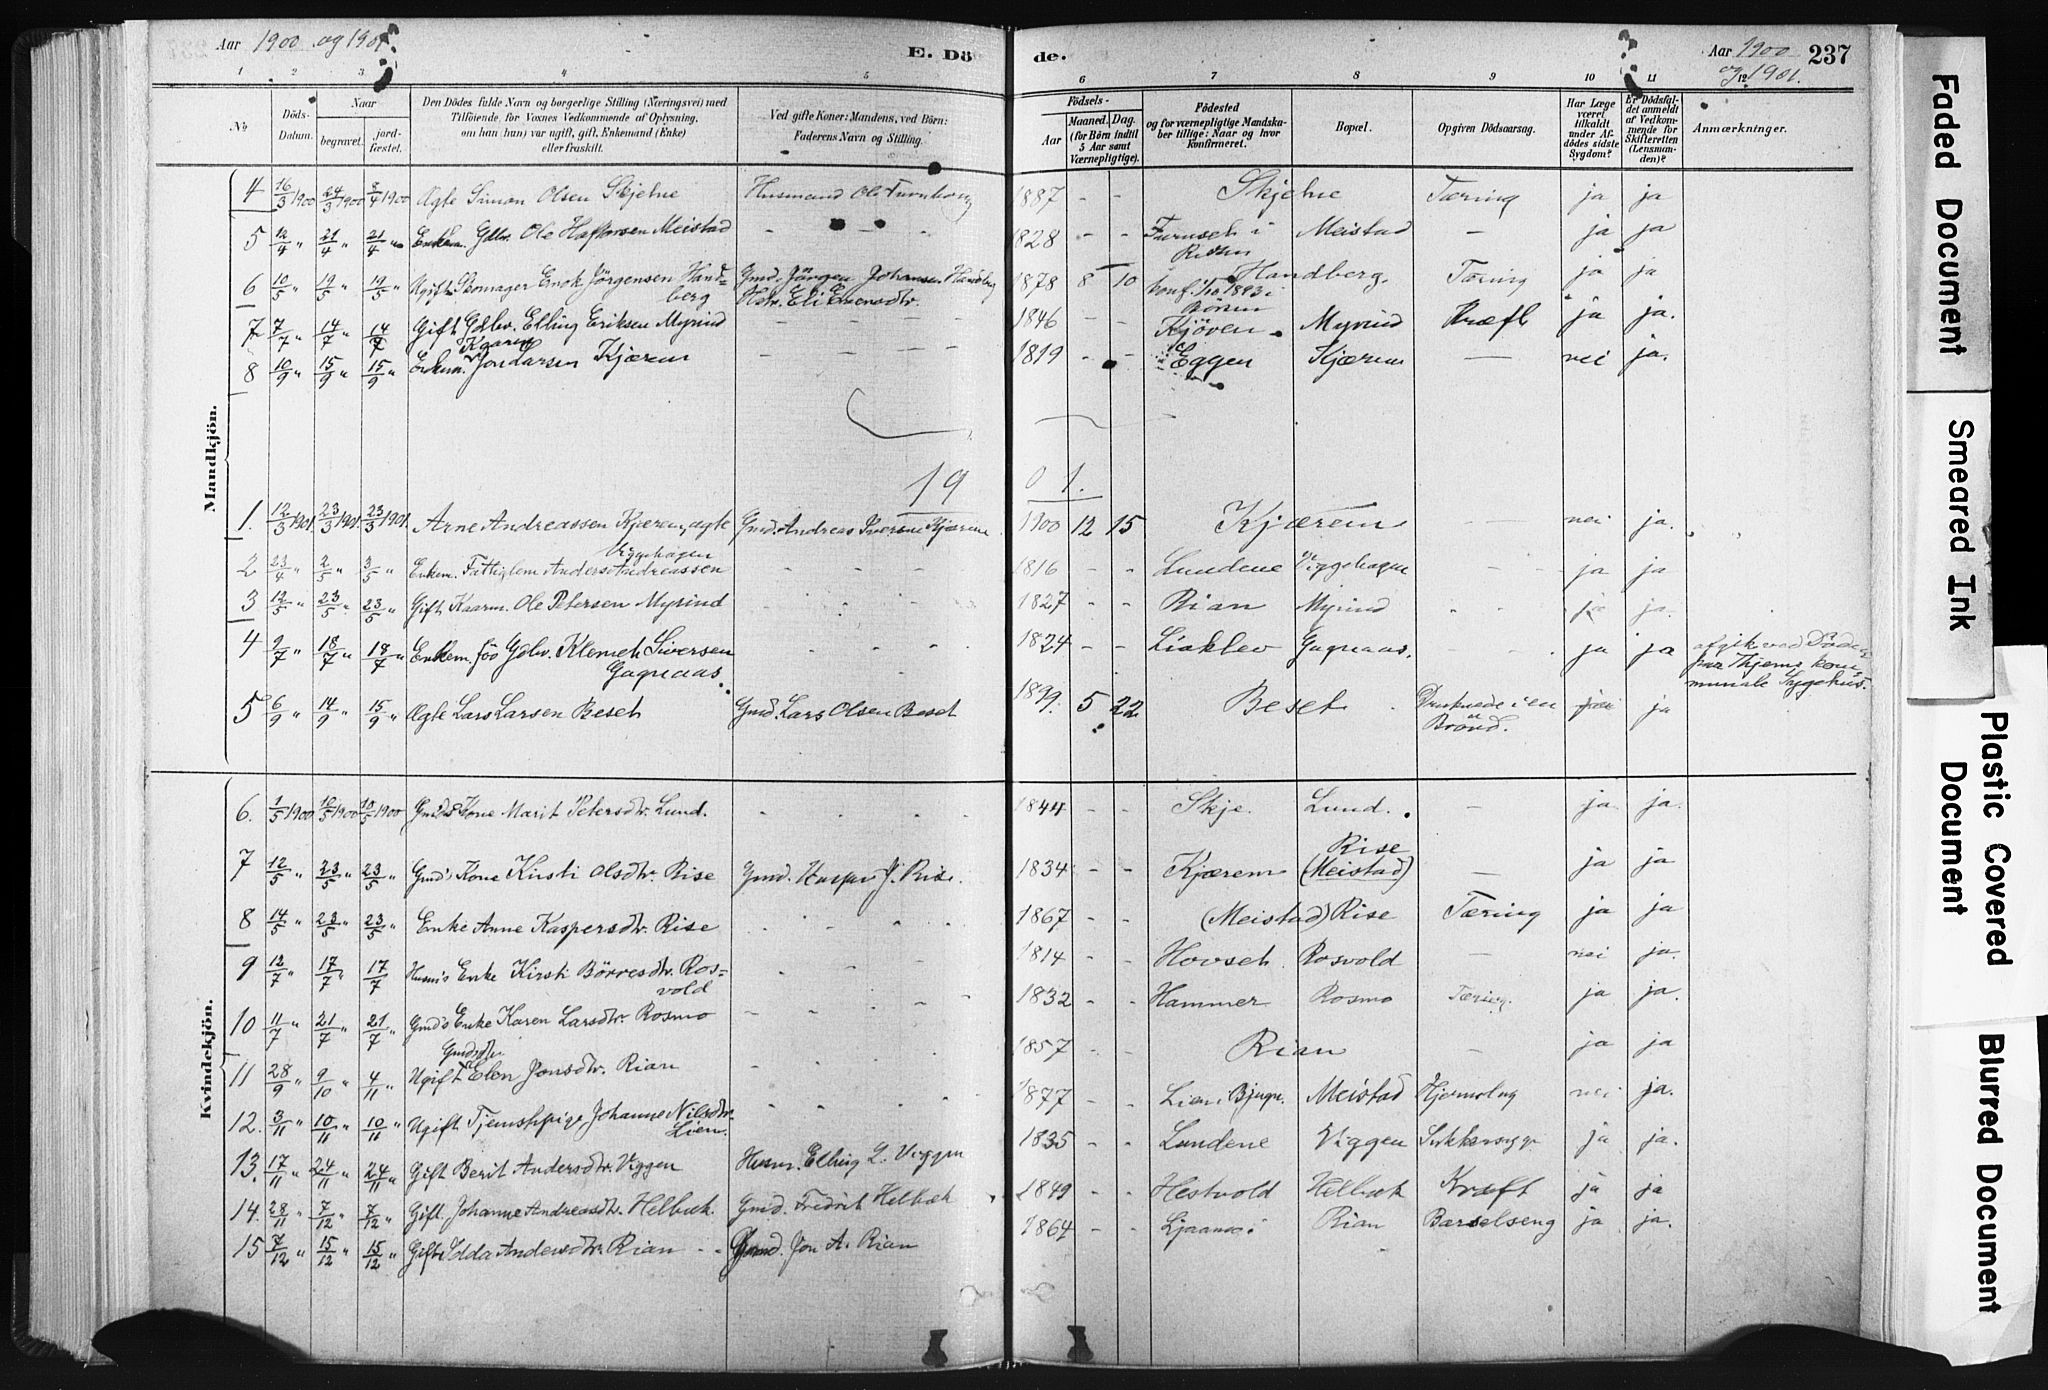 Aar 1900 og 1901.
E. Døde.
Aar 1900 og 1901. 237
1 2 3 4 5 6 7 8 9 10 11 12
No
Döds-Datum.
Naar begravet. jordfæstet.
Den Dödes fulde Navn og borgerlige Stilling (Næringsvei) med Tilföiende, for Voxnes Vedkommende af Oplysning, om han (hun) var ugift, gift, Enkemand (Enke) eller fraskilt.
Ved gifte Koner: Mandens, ved Börn: Faderens Navn og Stilling.
Födsels-
Aar Maaned. Dag. (for Börn indtil 5 Aar samt Værnepligtige).
Födested og for værnepligtige Mandskaber tillige: Naar og hvor konfirmeret.
Bopæl.
Opgiven Dödsaarsag.
Har Læge været tilkaldt under Afdödes sidste Sygdom?
Er Dödsfaldet anmeldt af Vedkommende for Skifteretten (Lensmanden)?
Anmærkninger.
Mandkjön.
4 16/3 1900 24/3 1900 8/4 1900 Ægte Simon Olsen Skjelne Husmand Ole 1887 - - Skjelne Tæring ja ja
5 12/4 " 21/4 " 21/4 " Enkem. Gdbr. Ole Meistad - - - 1828 - - Furuseth i Rissen Meistad — ja ja
6 10/5 " 19/5 " 19/5 " Ugift Skomager Enok Jörgensen Handberg Gmd. Jörgen Johansen Handberg Hstr. Eli Evensdtr. 1878 8 10 konf. 1/10 1893 i Börsen Handberg Tæring ja ja
7 7/7 " 14/7 " 14/7 " Gift Gdbr. Elling Eriksen Myrind - - - 1846 - - Kjören Myrind Kræft ja ja.
8 10/9 " 15/9 " 15/9 " Enkem. Kaarm. Jon Larsen Kjærem - - - 1819 - - Eggen Kjærem — nei ja.
1901.
1. 12/3 1901. 23/3 1901. 23/3 1901. Arne Andreassen Kjærem, ægte Gmd. Andreas Iversen Kjærem 1900 12 15 Kjærem - - nei ja.
2 23/4 " 2/5 " 3/5 " Enkem. Fattiglem Anders Andreassen Viggehagen - - - 1816 - - Lundene Viggehagen - - ja ja
3 12/5 " 23/5 " 23/5 " Gift Kaarm. Ole Petersen Myrind - - - 1827 - - Rian Myrind - - ja ja.
4 9/7 " 18/7 " 18/7 " Enkem. föv Gdbr. Klemet Siversen Gagnaas. - - - 1824 - - Liaklev Gagnaas. - - ja ja afgik ved Döden paa Thjems kommunale Sygehus.
5 6/9 " 14/9 " 15/9 " Ægte Lars Larsen Beset Gmd. Lars Olsen Beset 1899. 5 22 Beset Druknede i en Brönd. ja
Kvindekjön.
6. 1/5 1900 10/5 1900 10/5 1900 Gmd's Kone Marit Petersdtr. Lund. - - - 1844 - - Skje. Lund. — ja ja.
7 12/5 " 23/5 " 23/5 " Gmd's Kone Kirsti Olsdtr. Rise Gmd. Kasper J. Rise. 1834 - - Kjærem Rise (Meistad) — ja ja
8 14/5 " 23/5 " 23/5 " Enke Anne Kaspersdtr. Rise - - - 1867 - - (Meistad) Rise Tæring ja ja
9 12/7 " 17/7 " 17/7 " Husm's Enke Kirsti Börresdtr. Rosvold - - - 1814 - - Hovset Rosvold — nei ja.
10 11/7 " 21/7 " 21/7 " Gmd's Enke Karen Larsdtr. Rosmo - - - 1832 - - Hammer Rosmo Tæring. ja ja.
11 28/9 " 9/10 " 4/11 " Ugift Gmdsdtr. Elen Jonsdtr. Rian - - - 1857 - - Rian — ja ja
12. 3/11 " 10/11 " 10/11 " Ugift Tjenestpige, Johanne Nilsdtr. Lien. - - - 1877 - - Lien i Bjugn. Meistad nei ja.
13. 17/11 " 24/11 " 24/11 " Gift Berit Andersdtr. Viggen Husm. Elling L. Viggen 1835 - - Lundene Viggen Sukkersyge ja ja.
14. 28/11 " 7/12 " 7/12 " Gift. Johanne Andreasdtr. Helbæk. Gmd. Fredrik Helbæk 1849 - - Hestvold Helbæk Kræft ja ja
15 7/12 " 15/12 " 15/12 " Gift Idda Andersdtr. Rian - - Gmd. Jon A. Rian 1864 - - Rian Barselseng ja ja.
Faded Document
Smeared Ink
Plastic Covered Document
Blurred Document